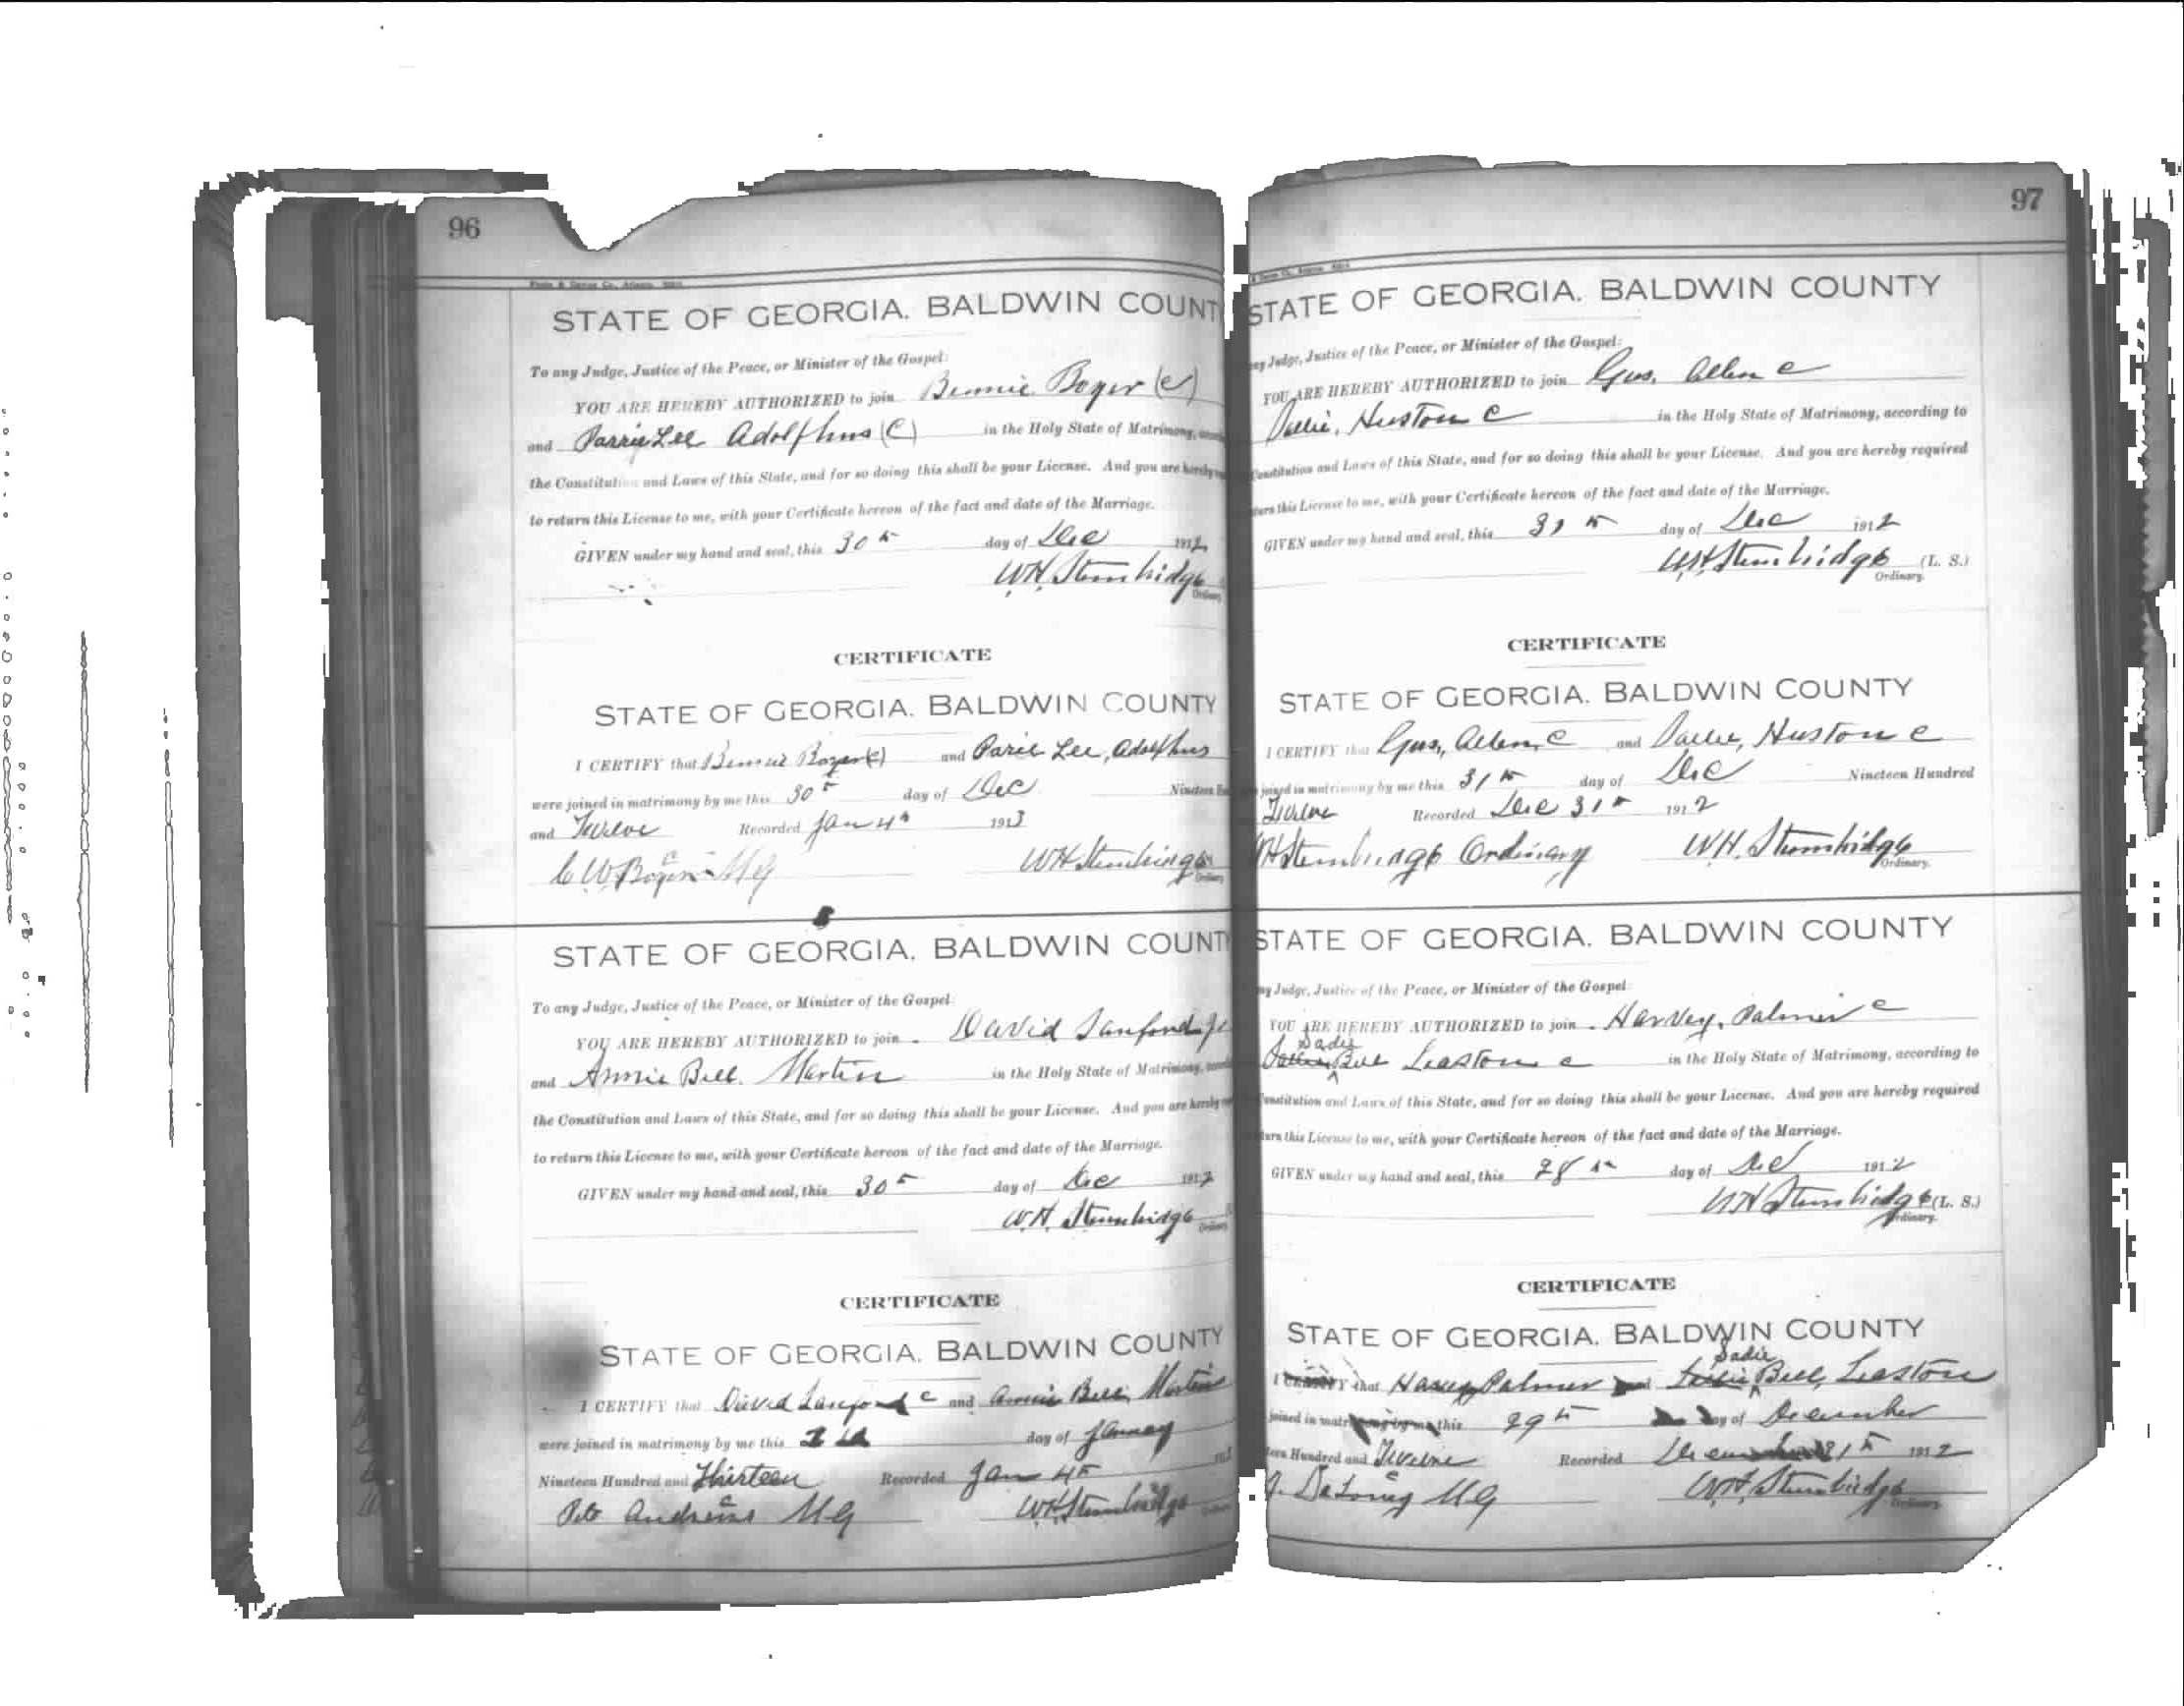 96
STATE OF GEORGIA. BALDWIN COUNT
To any Judge, Justice of the Peace, or Minister of the Gospel:
YOU ARE HEREBY AUTHORIZED to join Bennie Boyer (C)
and Parrie Lee Adolphus (C) in the Holy State of Matrimony,
the Constitution and Laws of this State, and for so doing this shall be your License. And you are hereby
to return this License to me, with your Certificate hereon of the fact and date of the Marriage.
GIVEN under my hand and seal, this 30th day of Dec 1912
W.H. Stembridge
Ordinary
CERTIFICATE
STATE OF GEORGIA. BALDWIN COUNTY
I CERTIFY that Bennie Bozer (C) and Parie Lee, Adolphus
were joined in matrimony by me this 30th day of Dec Nineteen
and Twelve Recorded Jan 4th 1913
C W M G WH Stembridge
Ordinary
STATE OF GEORGIA. BALDWIN COUNT
To any Judge, Justice of the Peace, or Minister of the Gospel:
YOU ARE HEREBY AUTHORIZED to join David Sanford
and Annie Bell. Martin in the Holy State of Matrimony,
the Constitution and Laws of this State, and for so doing this shall be your License. And you are hereby
to return this License to me, with your Certificate hereon of the fact and date of the Marriage.
GIVEN under my hand and seal, this 30th day of Dec 1912
W.H. Stembridge
Ordinary
CERTIFICATE
STATE OF GEORGIA. BALDWIN COUNTY
I CERTIFY that David Sanford C and Annie Bell, Martin
were joined in matrimony by me this day of January
Nineteen Hundred and Thirteen Recorded Jan 4th
Pete Andrews C M G WH Stembridge
97
STATE OF GEORGIA. BALDWIN COUNTY
ny Judge, Justice of the Peace, or Minister of the Gospel:
YOU ARE HEREBY AUTHORIZED to join Gus, Allen C
Sallie, Huston C in the Holy State of Matrimony, according to
Constitution and Laws of this State, and for so doing this shall be your License. And you are hereby required
turn this License to me, with your Certificate hereon of the fact and date of the Marriage.
GIVEN under my hand and seal, this 31th day of Dec 1912
W.H. Stembridge (L. S.)
Ordinary.
CERTIFICATE
STATE OF GEORGIA. BALDWIN COUNTY
I CERTIFY that Gus, Allen, C and Sallie, Huston C
joined in matrimony by me this 31th day of Dec Nineteen Hundred
Twelve Recorded Dec 31th 1912
WH Stembridge Ordinary W.H. Stembridge
Ordinary.
STATE OF GEORGIA. BALDWIN COUNTY
ny Judge, Justice of the Peace, or Minister of the Gospel:
YOU ARE HEREBY AUTHORIZED to join Harvey, Palmer C
Sadie
Bell Leaston C in the Holy State of Matrimony, according to
Constitution and Laws of this State, and for so doing this shall be your License. And you are hereby required
turn this License to me, with your Certificate hereon of the fact and date of the Marriage.
GIVEN under my hand and seal, this 28th day of Dec 1912
W H Stembridge (L. S.)
Ordinary.
CERTIFICATE
STATE OF GEORGIA. BALDWIN COUNTY
Sadie
I CERTIFY that Harvey Palmer and Bell, Leaston
joined in matrimony by me this 29th day of December
teen Hundred and Twelve Recorded December 31th 1912
M G W.H. Stembridge
Ordinary.